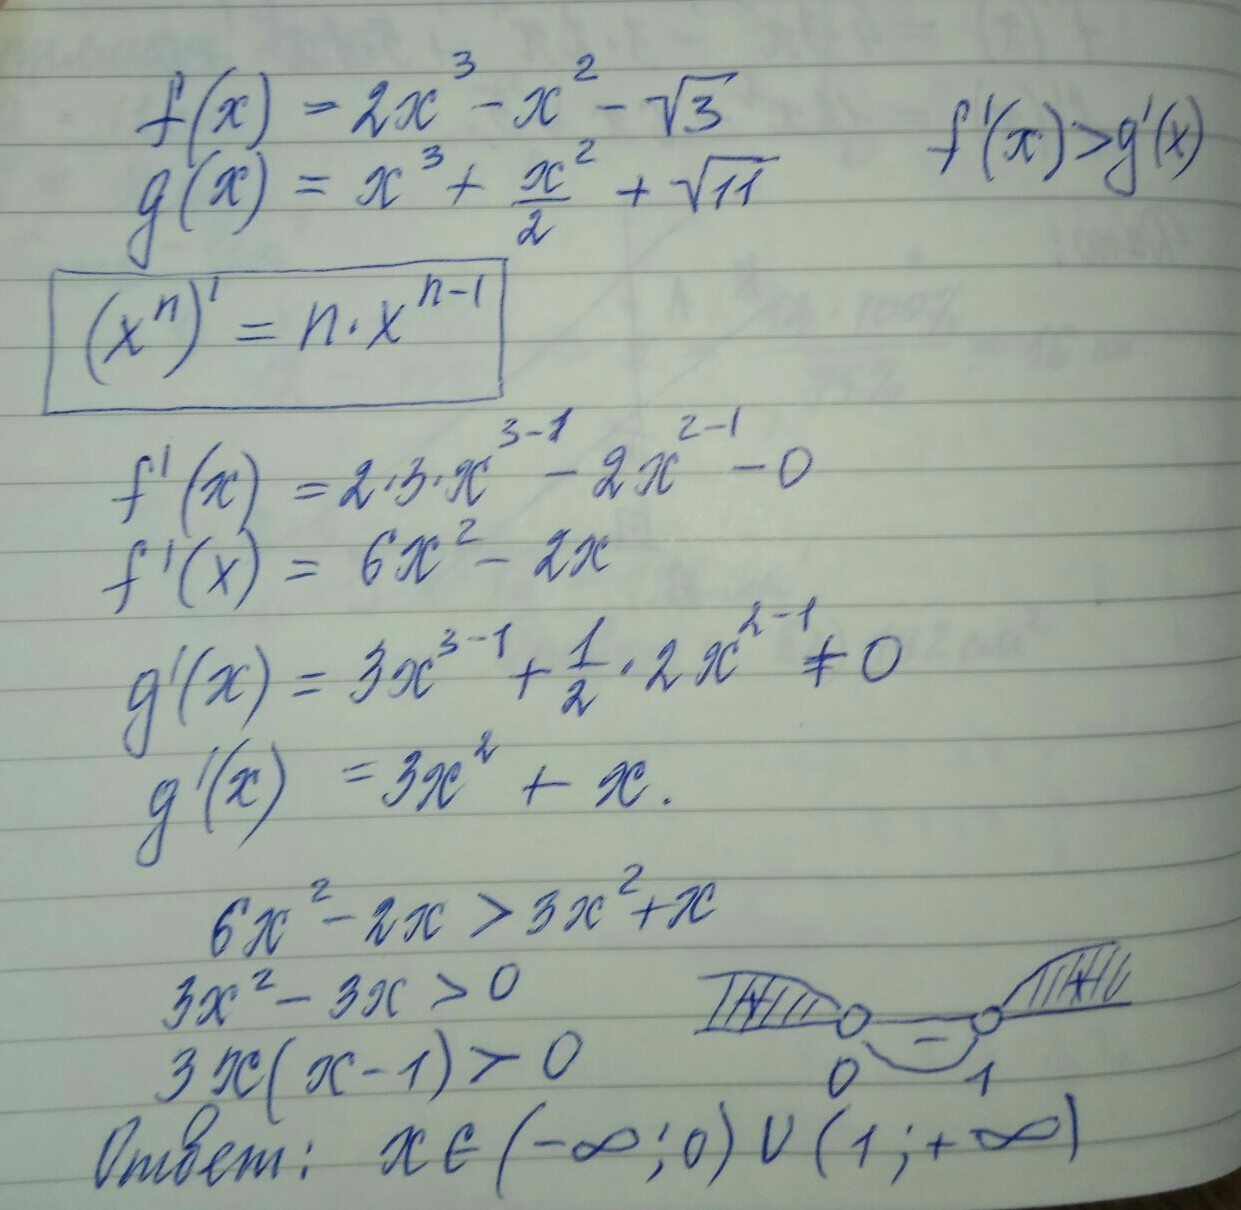 f(x) = 2x³ - x² - √3
g(x) = x³ + x²/2 + √11
f'(x) > g'(x)
(xⁿ)' = n · xⁿ⁻¹
f'(x) = 2·3·x³⁻¹ - 2x²⁻¹ - 0
f'(x) = 6x² - 2x
g'(x) = 3x³⁻¹ + 1/2 · 2x²⁻¹ + 0
g'(x) = 3x² + x.
6x² - 2x > 3x² + x
3x² - 3x > 0
3x(x-1) > 0
+ - +
0 1
Ответ: x ∈ (-∞; 0) ∪ (1; +∞)